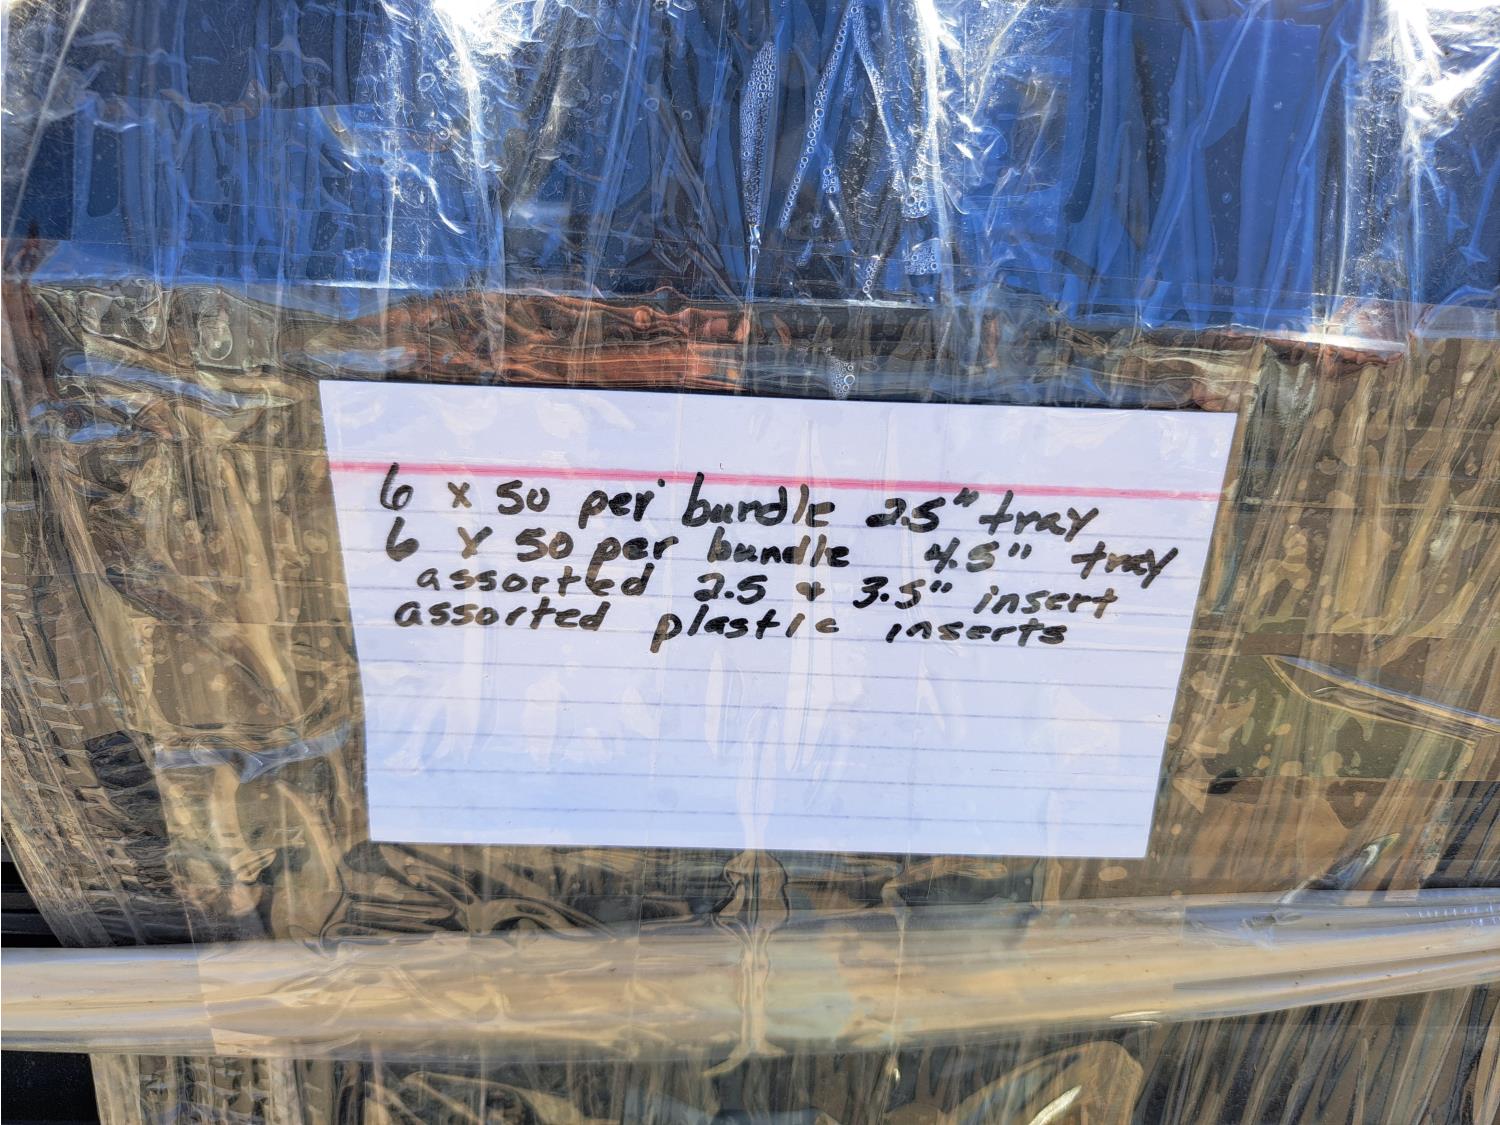 6 x 50 per bundle 2.5" tray
6 x 50 per bundle 4.5" tray
assorted 2.5 + 3.5" insert
assorted plastic inserts